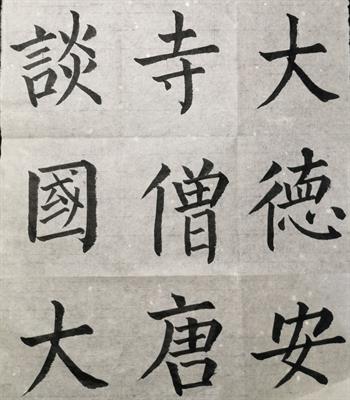 大德安
寺僧唐
談國大